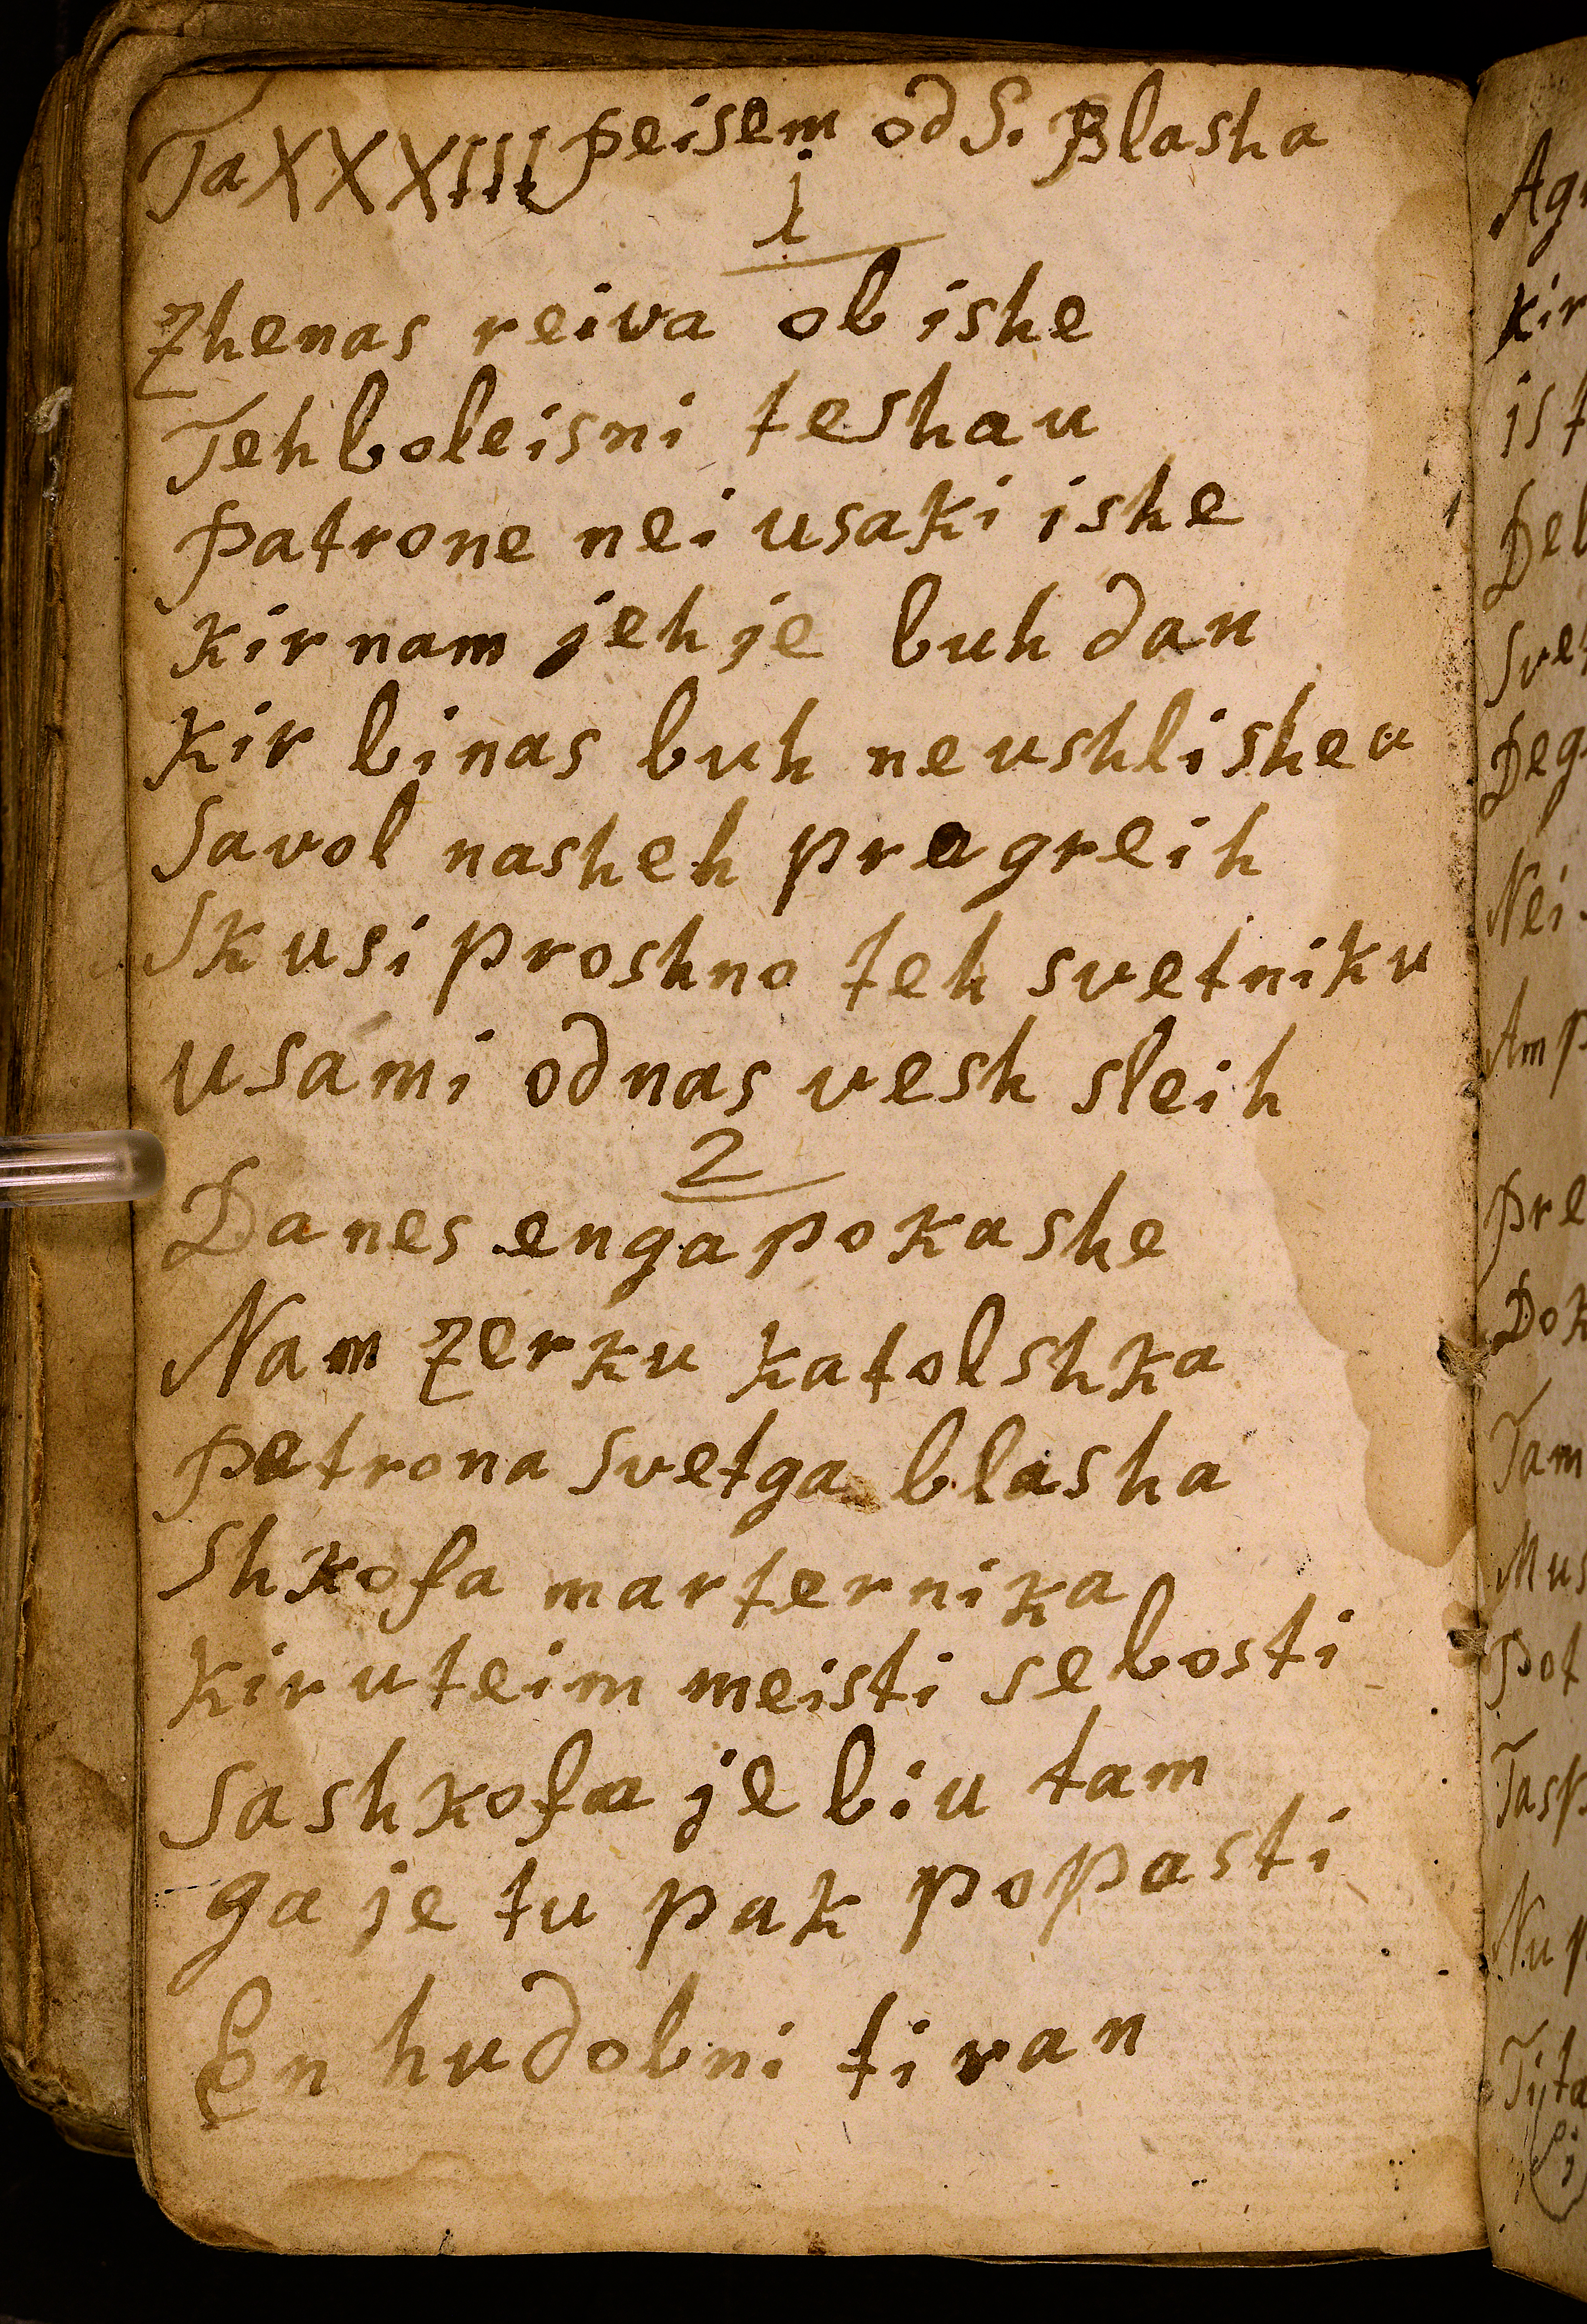 Ta XXXIII Peisem od S. Blasha
1
Zhenas reiva ob ishe
Teh boleisni teshau
Patrone nei usaki ishe
Kir nam jeh je buh dau
Kir binas buh ne ushlisheu
Savol nasheh pregreih
Skusi proshno teh svetniku
usámi odnas vesh sleih
2
Danes enga pokashe
Nam Zerku katolshka
Patrona Svetga blasha
Shkofa marternika
Kir uteim meisti sebosti
Sashkofa je biu tam
ga je tu pak popasti
En hudobni tiran
Ag
Kir
is t
Del
Sve
Deg
Nei
Am p
Pre
Dok
Tam
Mus
Pot
Tasp
Nu p